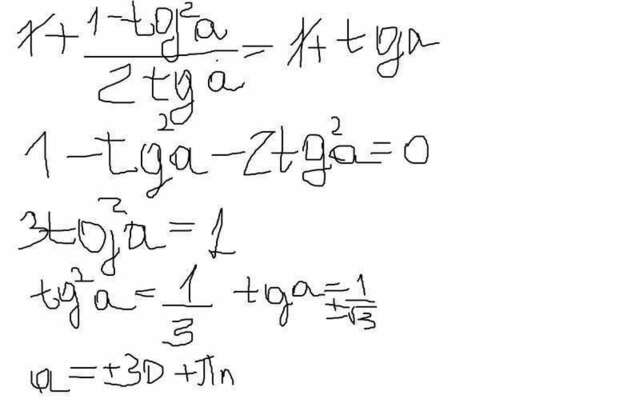 1 + (1 - tg²a)/(2tga) = 1 + tga
1 - tg²a - 2tg²a = 0
3tg²a = 1
tg²a = 1/3 tga = ± 1/√3
a = ±30 + πn